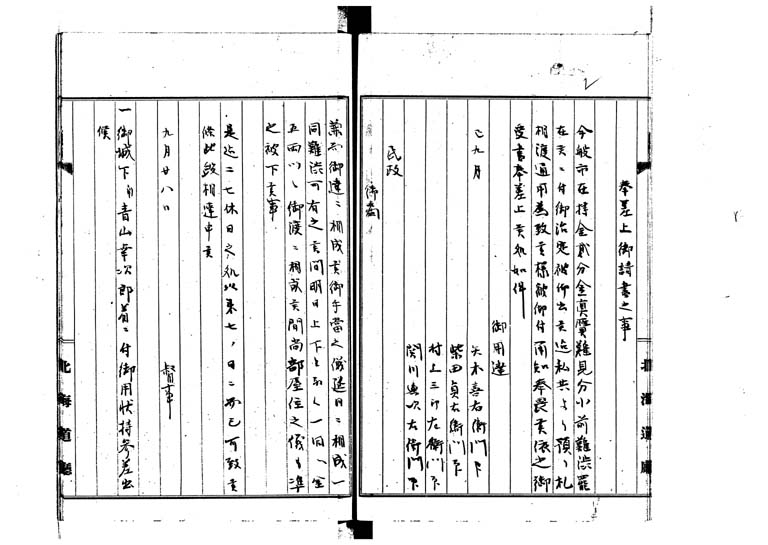 奉差上御請書之事
今般市在持金貳分金真贋難見分小前難渋罷
在候ニ付御治定被仰出候迄私共より預り札
相渡通用為致候様被仰付承知奉畏候依之御
受書奉差上候処如件
御用達
矢木喜右衛門下
柴田貞右衛門下
村上三郎左衛門下
関川與次右衛門下
巳九月
民政
御局
兼而御達ニ相成候御手當之儀延日ニ相成一
同難渋可有之候間明日上下士卒一同へ金
五両ツヽ御渡ニ相成候間尚部屋住之儀も準
之被下候事
是迄二七休日之処以来七ノ日ニ而已可致候
條此段相達申候
九月廿八日
督事
一御城下ゟ青山幸次郎着ニ付御用状持参差出
候
北海道廳
北海道廳